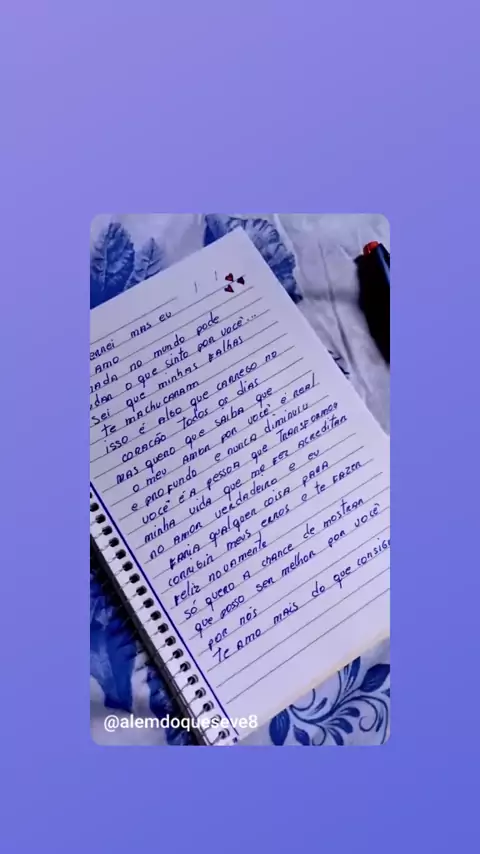 errei mas eu
amo
nada no mundo pode
dar o que sinto por você...
sei que minhas falhas
te machucaram
isso é algo que carrego no
coração todos os dias
mas quero que saiba que
o meu amor por você é real
e profundo e nunca diminuiu
você é a pessoa que transformou
minha vida que me fez acreditar
no amor verdadeiro e eu
faria qualquer coisa para
corrigir meus erros e te fazer
feliz novamente
só quero a chance de mostrar
que posso ser melhor por você
por nós
te amo mais do que consigo
@alemdoqueseve8